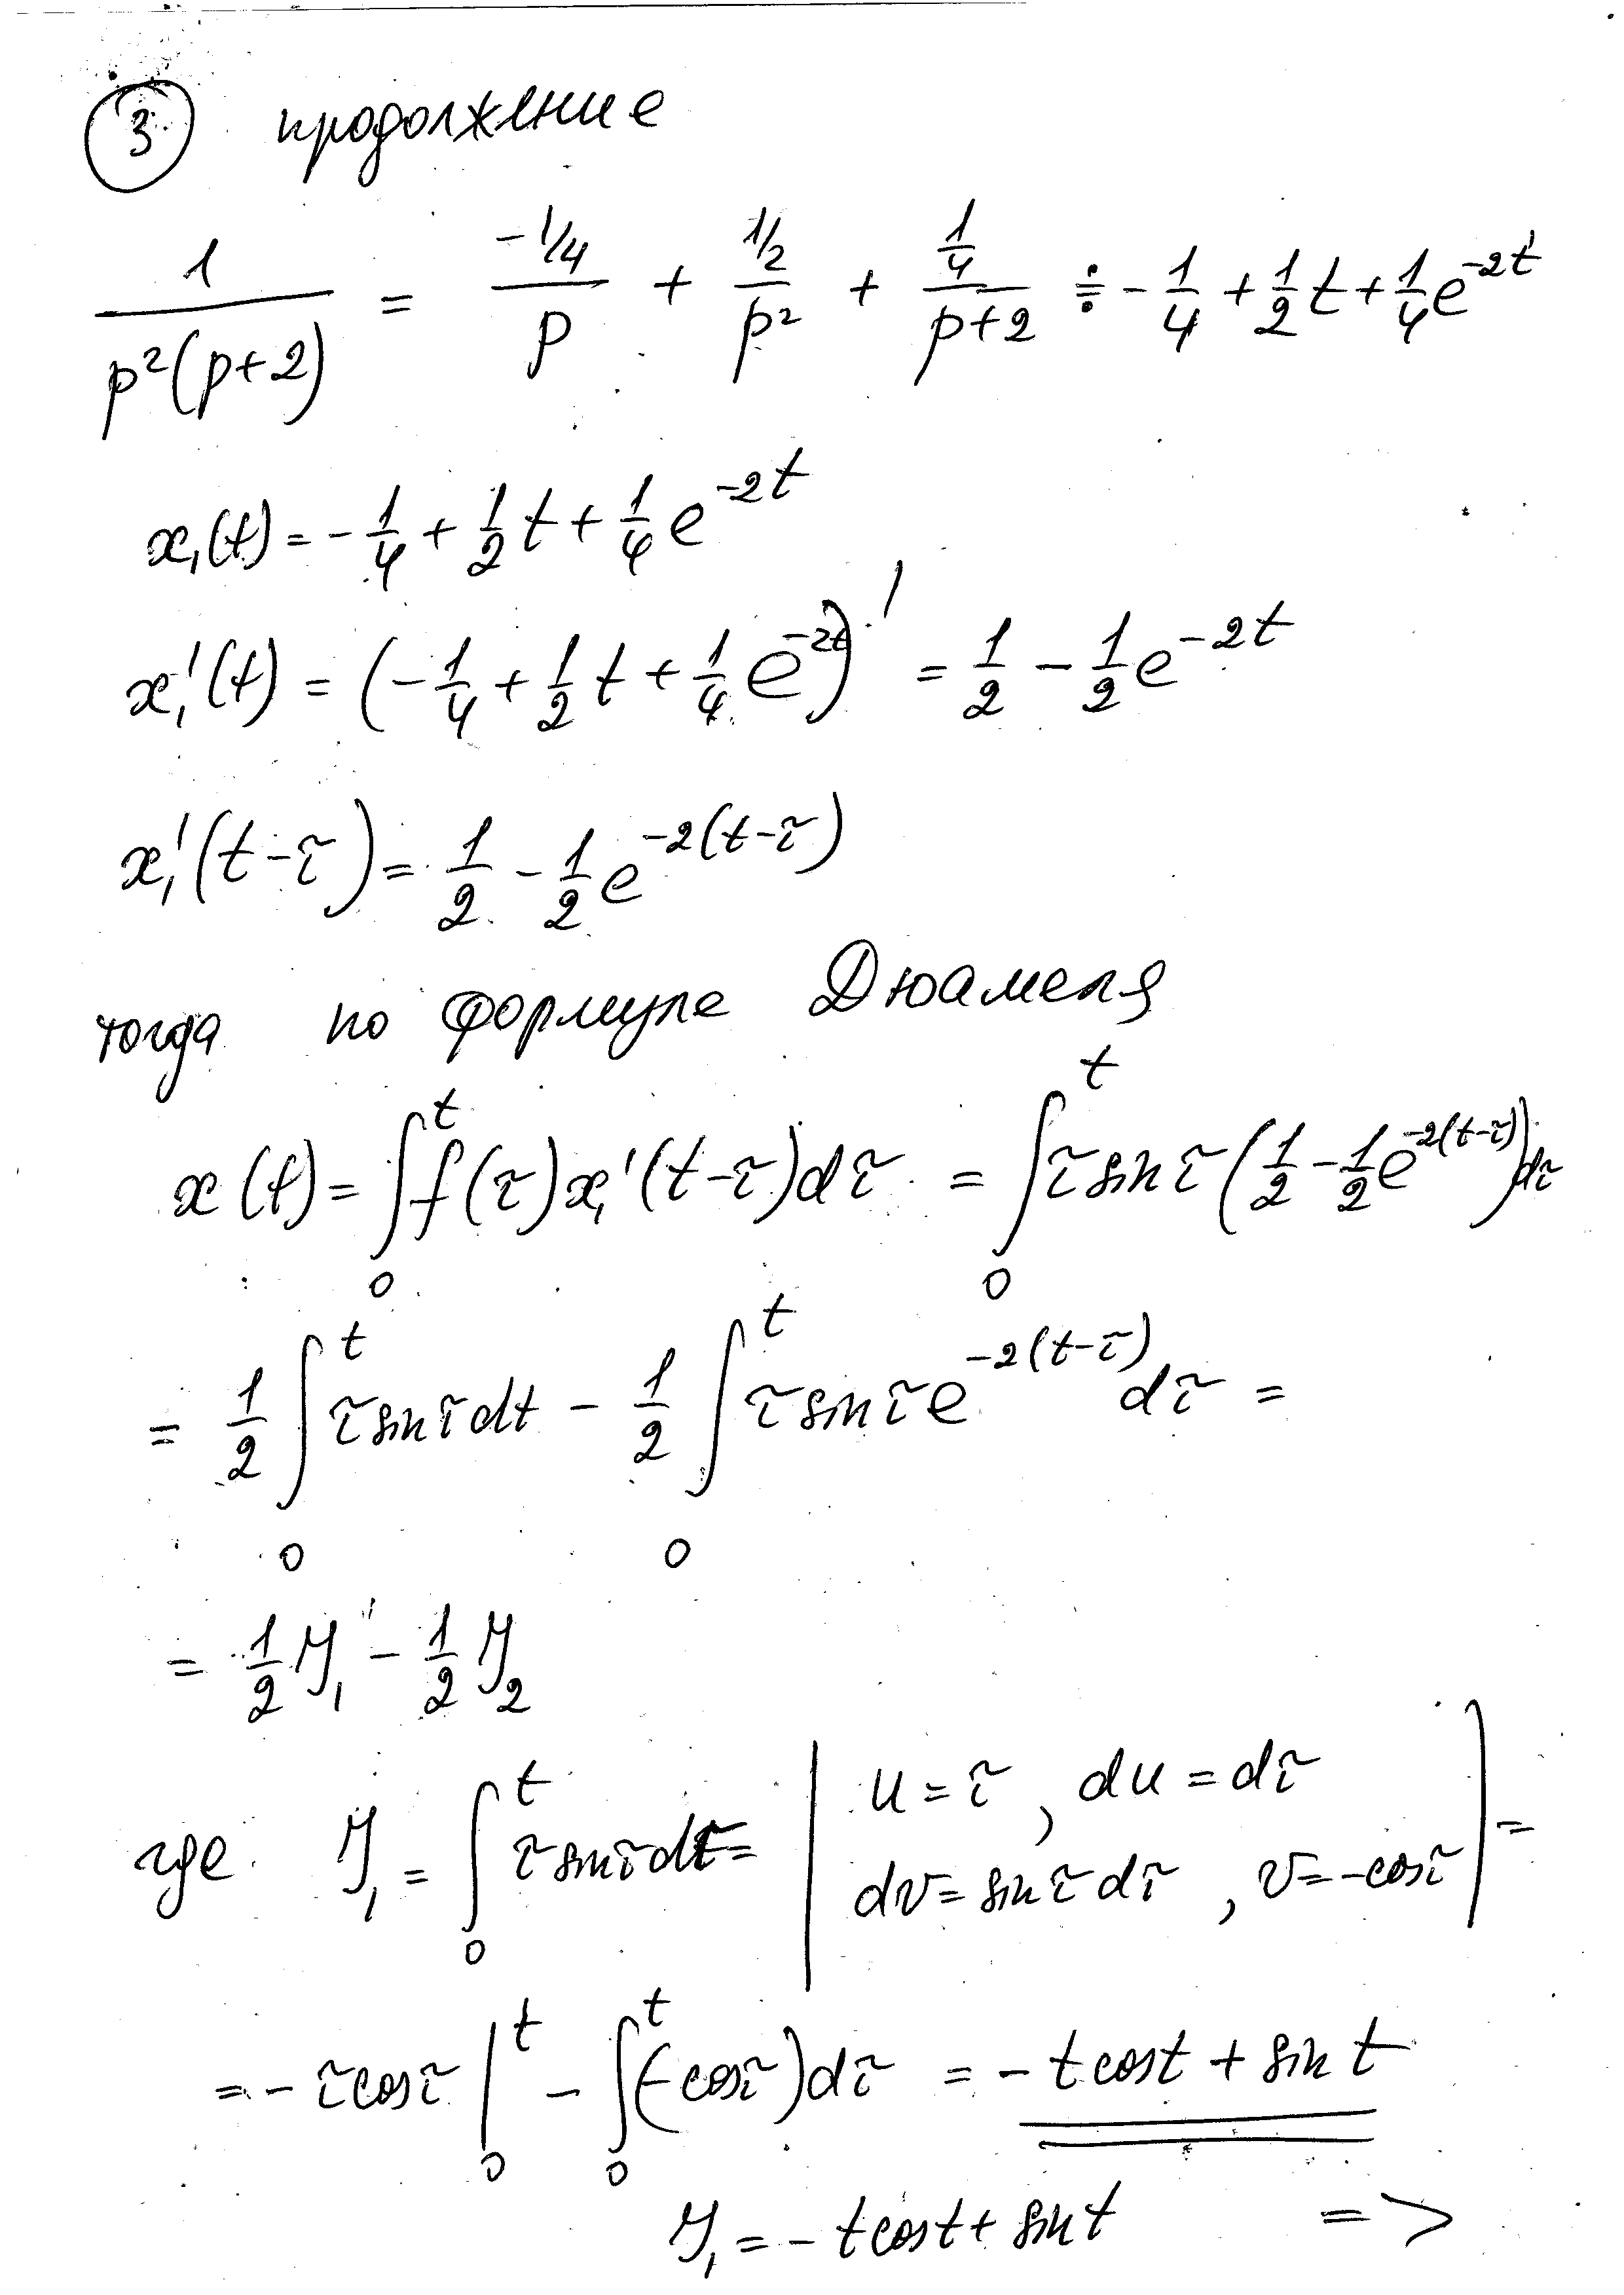 3 продолжение
1/(p²(p+2)) = (-1/4)/p + (1/2)/p² + (1/4)/(p+2) ÷ -1/4 + 1/2 t + 1/4 e^(-2t)
x₁(t) = -1/4 + 1/2 t + 1/4 e^(-2t)
x₁'(t) = (-1/4 + 1/2 t + 1/4 e^(-2t))' = 1/2 - 1/2 e^(-2t)
x₁'(t-τ) = 1/2 - 1/2 e^(-2(t-τ))
тогда по формуле Дюамеля
x(t) = ∫₀ᵗ f(τ)x₁'(t-τ)dτ = ∫₀ᵗ τ sin τ (1/2 - 1/2 e^(-2(t-τ)))dτ
= 1/2 ∫₀ᵗ τ sin τ dt - 1/2 ∫₀ᵗ τ sin τ e^(-2(t-τ)) dτ =
= 1/2 J₁ - 1/2 J₂
где J₁ = ∫₀ᵗ τ sin τ dτ = | u = τ, du = dτ
dv = sin τ dτ, v = -cos τ | =
= -τ cos τ |₀ᵗ - ∫₀ᵗ (-cos τ)dτ = -t cos t + sin t
J₁ = -t cos t + sin t =>